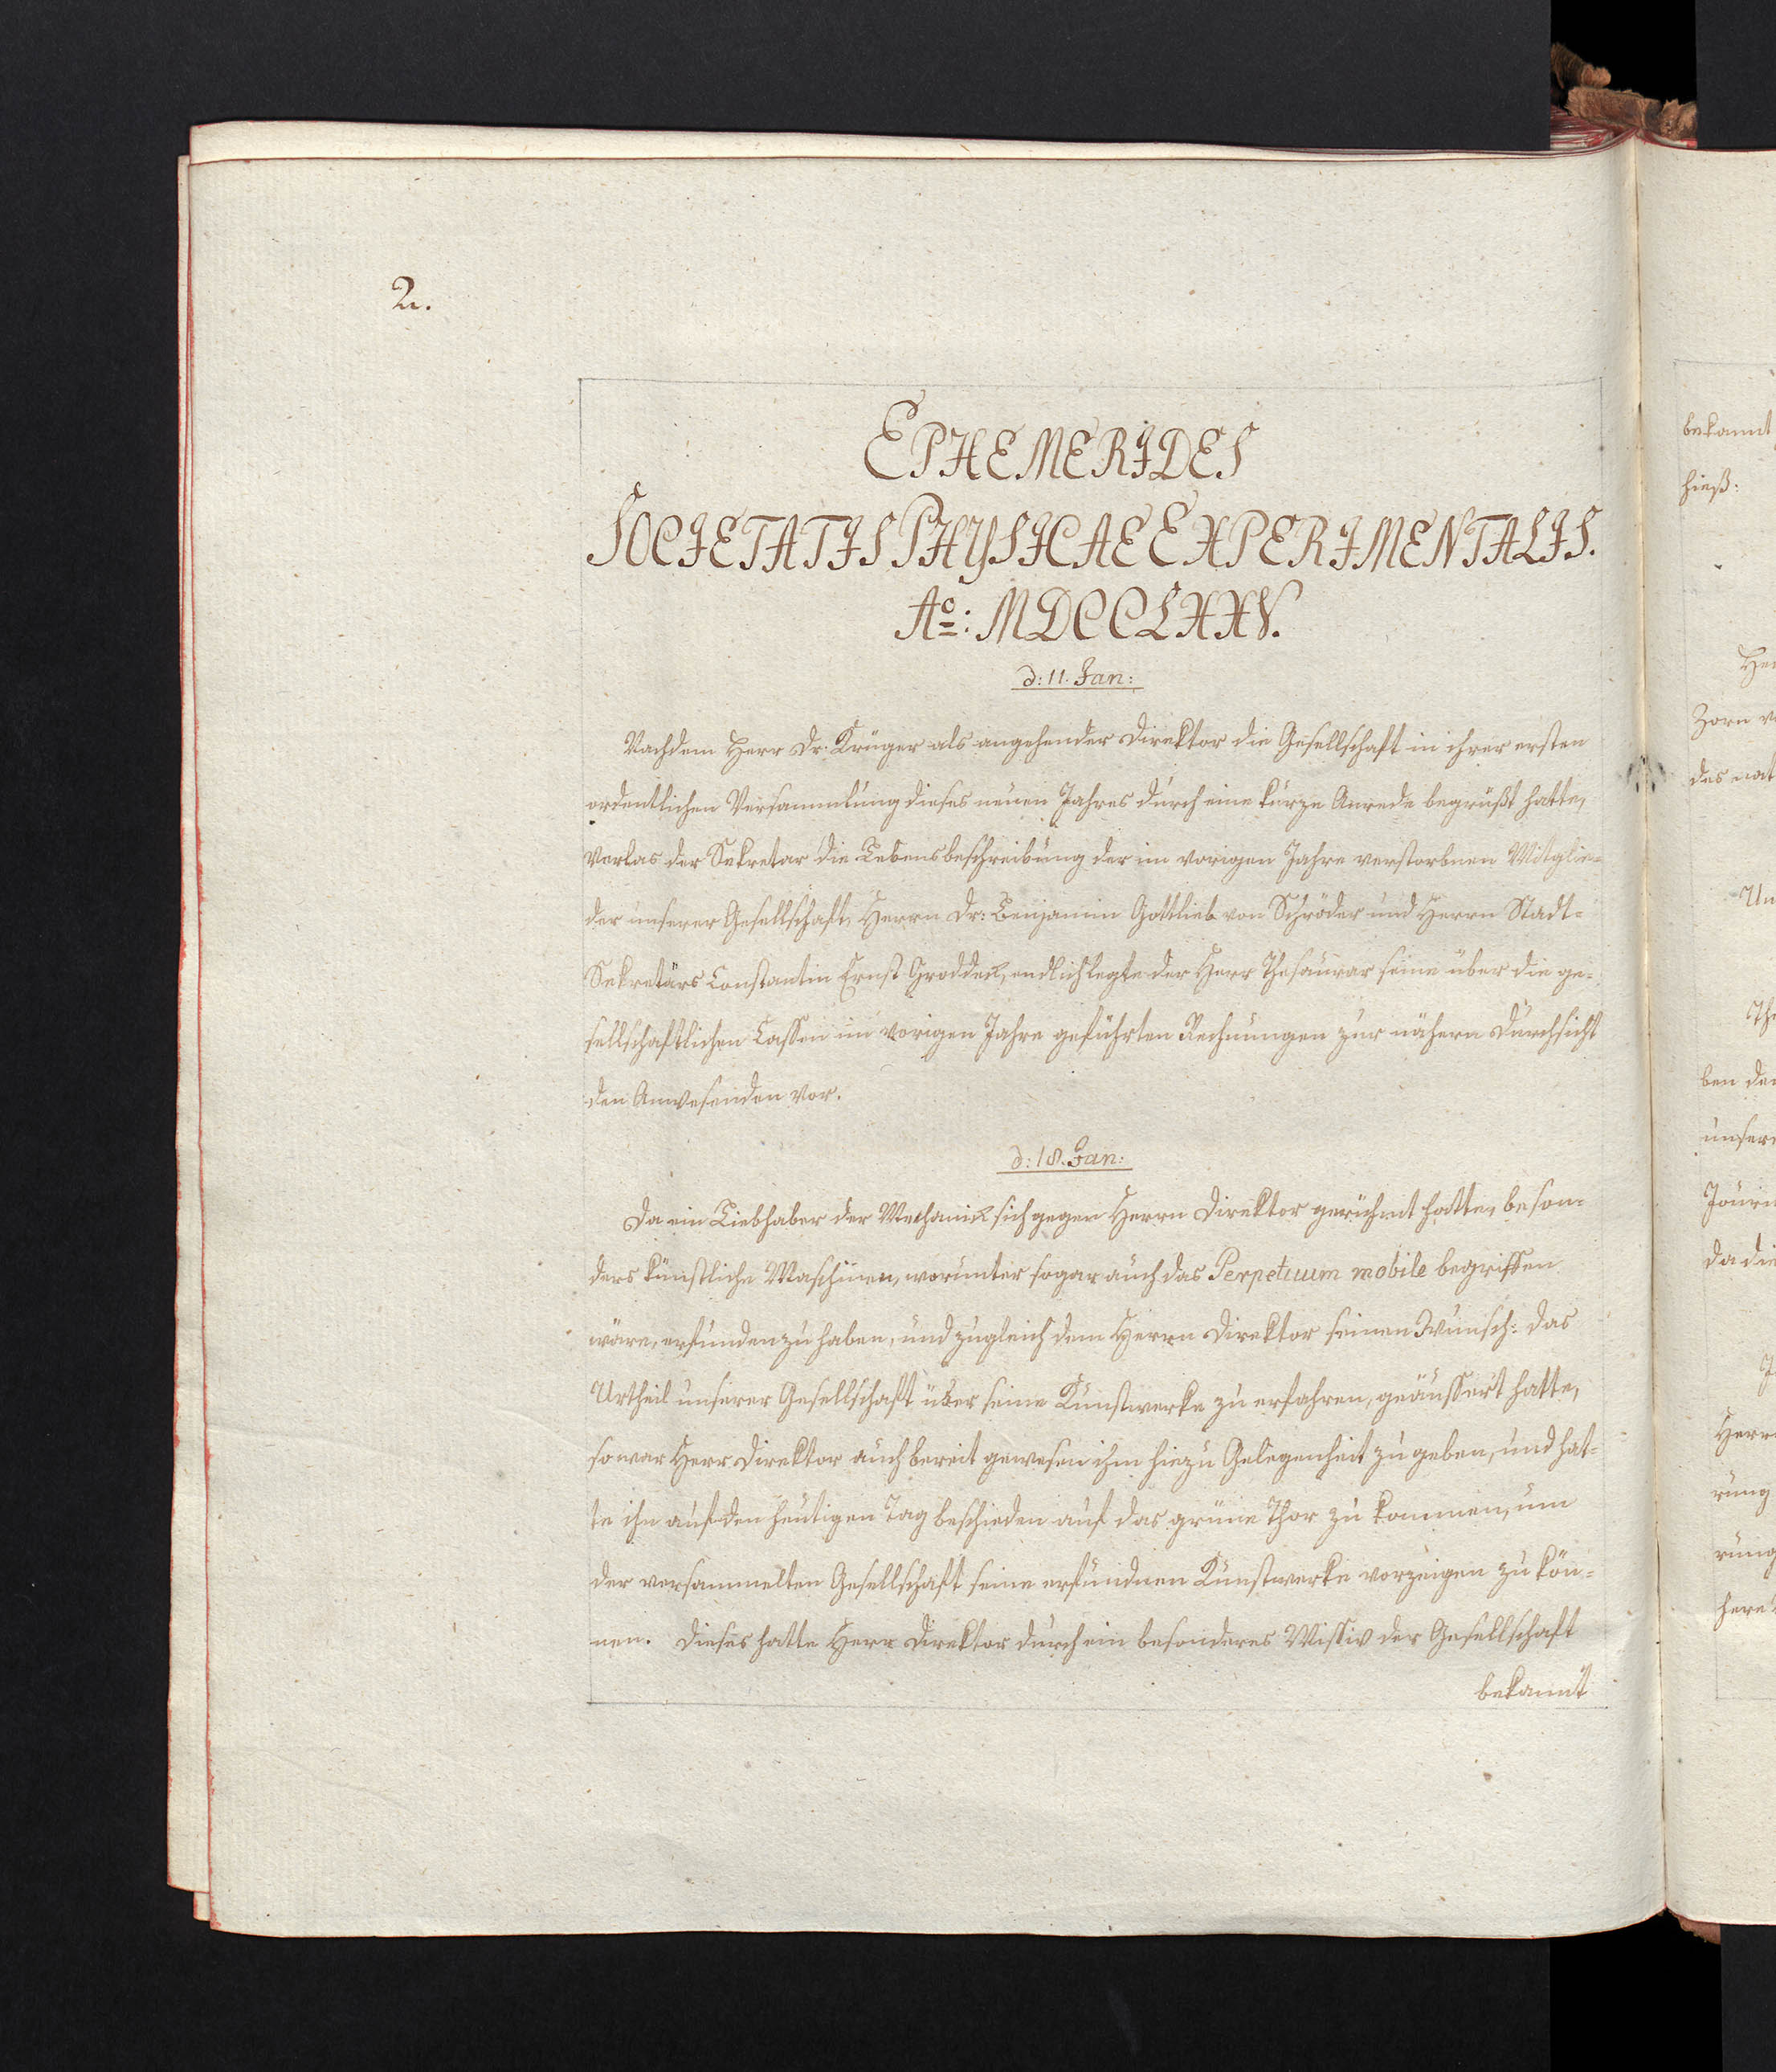 2.
EPHEMERIDES
SOCIETATIS PHYSICAE EXPERIMENTALIS.
Ao: MDCCLXXV.
d: 11. Jan:
Nachdem Herr Dr. Krüger als angehender Direktor die Gesellschaft in ihrer ersten
ordentlichen Versammlung dieses neuen Jahres durch eine kurze Anrede begrüßt hatte,
verlas der Sekretar die Lebensbeschreibung der im vorigen Jahre verstorbnen Mitglie-
der unserer Gesellschaft, Herrn Dr: Benjamin Gottlieb von Schröder und Herrn Stadt-
Sekretärs Constantin Ernst Groddeck, endlich legte der Herr Thesaurar seine über die ge-
sellschaftlichen Cassen im vorigen Jahre geführten Rechnungen zur nähern Durchsicht
den Anwesenden vor.
d: 18. Jan:
Da ein Liebhaber der Mechanick sich gegen Herrn Direktor gerühmt hatte, beson-
ders künstliche Maschinen, worunter sogar auch das Perpetuum mobile begriffen
wäre, erfunden zu haben, und zugleich dem Herrn Direktor seinen Wunsch: das
Urtheil unserer Gesellschaft über seine Kunstwerke zu erfahren, geäussert hatte,
so war Herr Direktor auch bereit gewesen ihm hiezu Gelegenheit zu geben, und hat-
te ihn auf den heutigen Tag beschieden auf das grüne Thor zu kommen, um
der versammelten Gesellschaft seine erfundnen Kunstwerke vorzeigen zu kön-
nen. Dieses hatte Herr Direktor durch ein besonderes Missiv der Gesellschaft
bekannt
bekannt
hieß:
Zorn
des
ben
unser
da die
Herr
rung